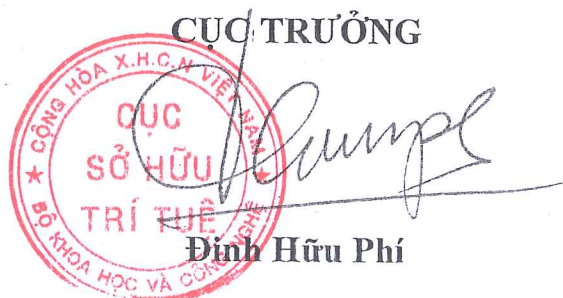 CỤC TRƯỞNG
CỘNG HÒA X.H.C.N VIỆT NAM
CỤC
SỞ HỮU
TRÍ TUỆ
BỘ KHOA HỌC VÀ CÔNG NGHỆ
Đinh Hữu Phí